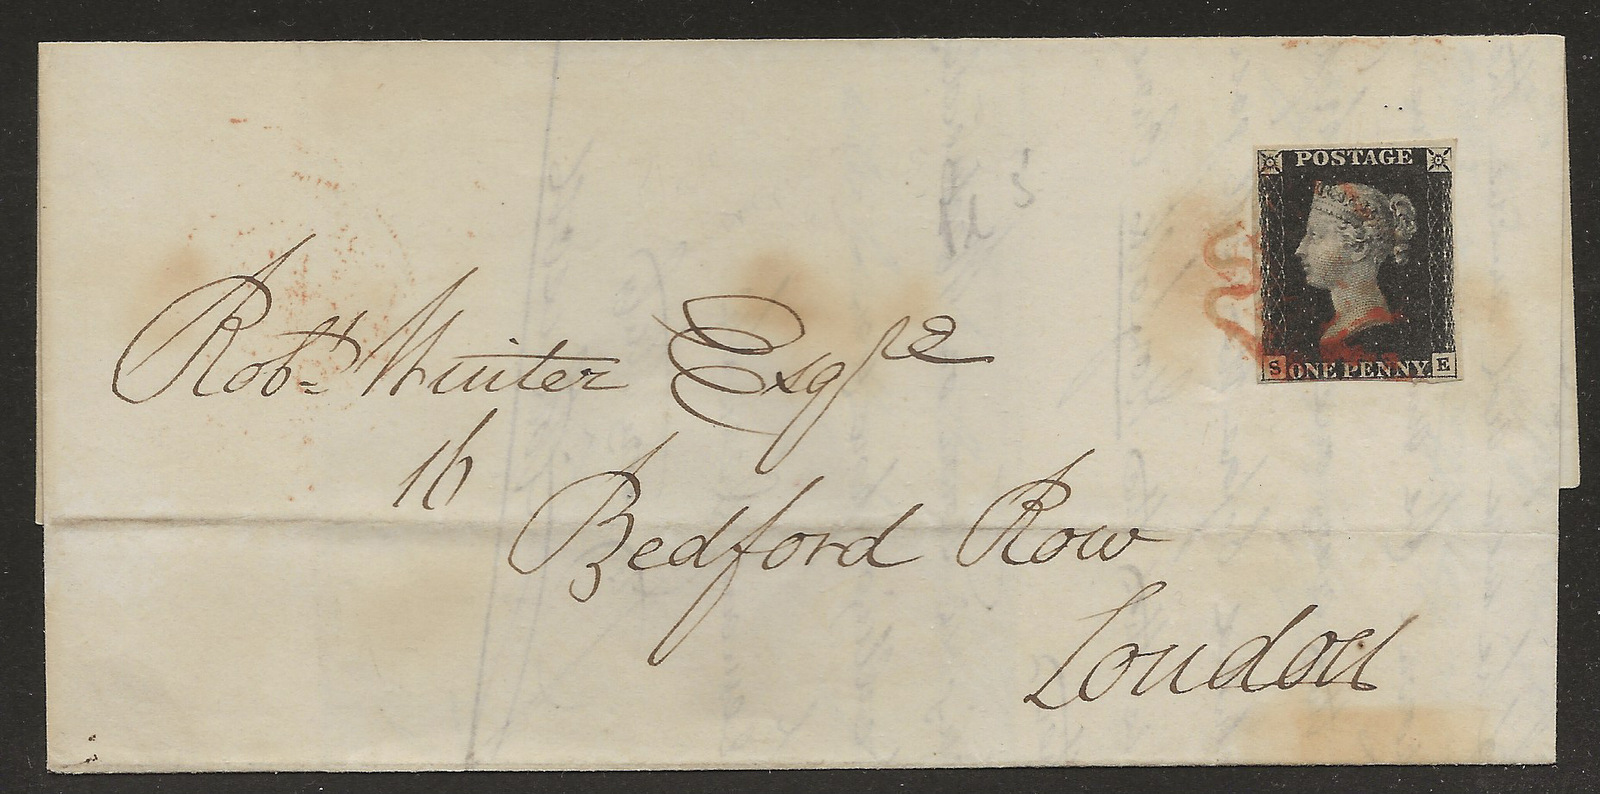 POSTAGE
S ONE PENNY E
Robt Winter Esqre
16
Bedford Row
London